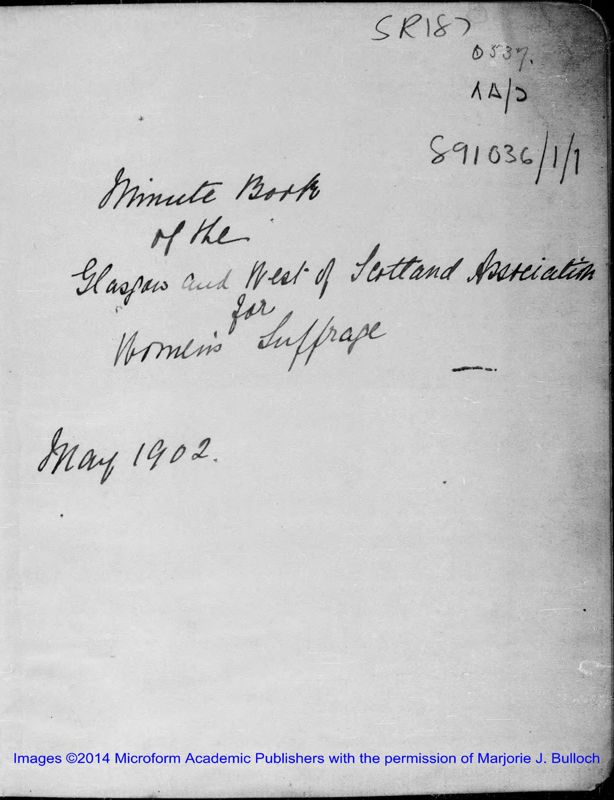 SR187
0537.
891036/1/1
Minute Book
of the
Glasgow and West of Scotland Association
for
Women's Suffrage
May 1902.
Images ©2014 Microform Academic Publishers with the permission of Marjorie J. Bulloch